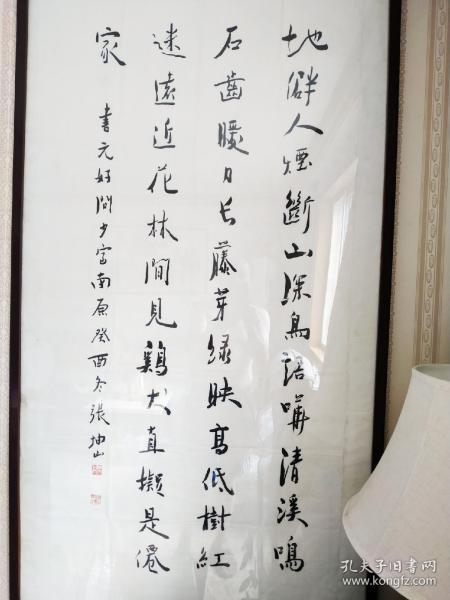 地僻人煙斷山深鳥語嘩清溪鳴
石齒暖日長藤芽綠映高低樹紅
迷遠近花林間見鷄犬直擬是僊
家
書元好問少室南原癸酉冬張坤山
孔夫子旧书网
www.kongfz.com